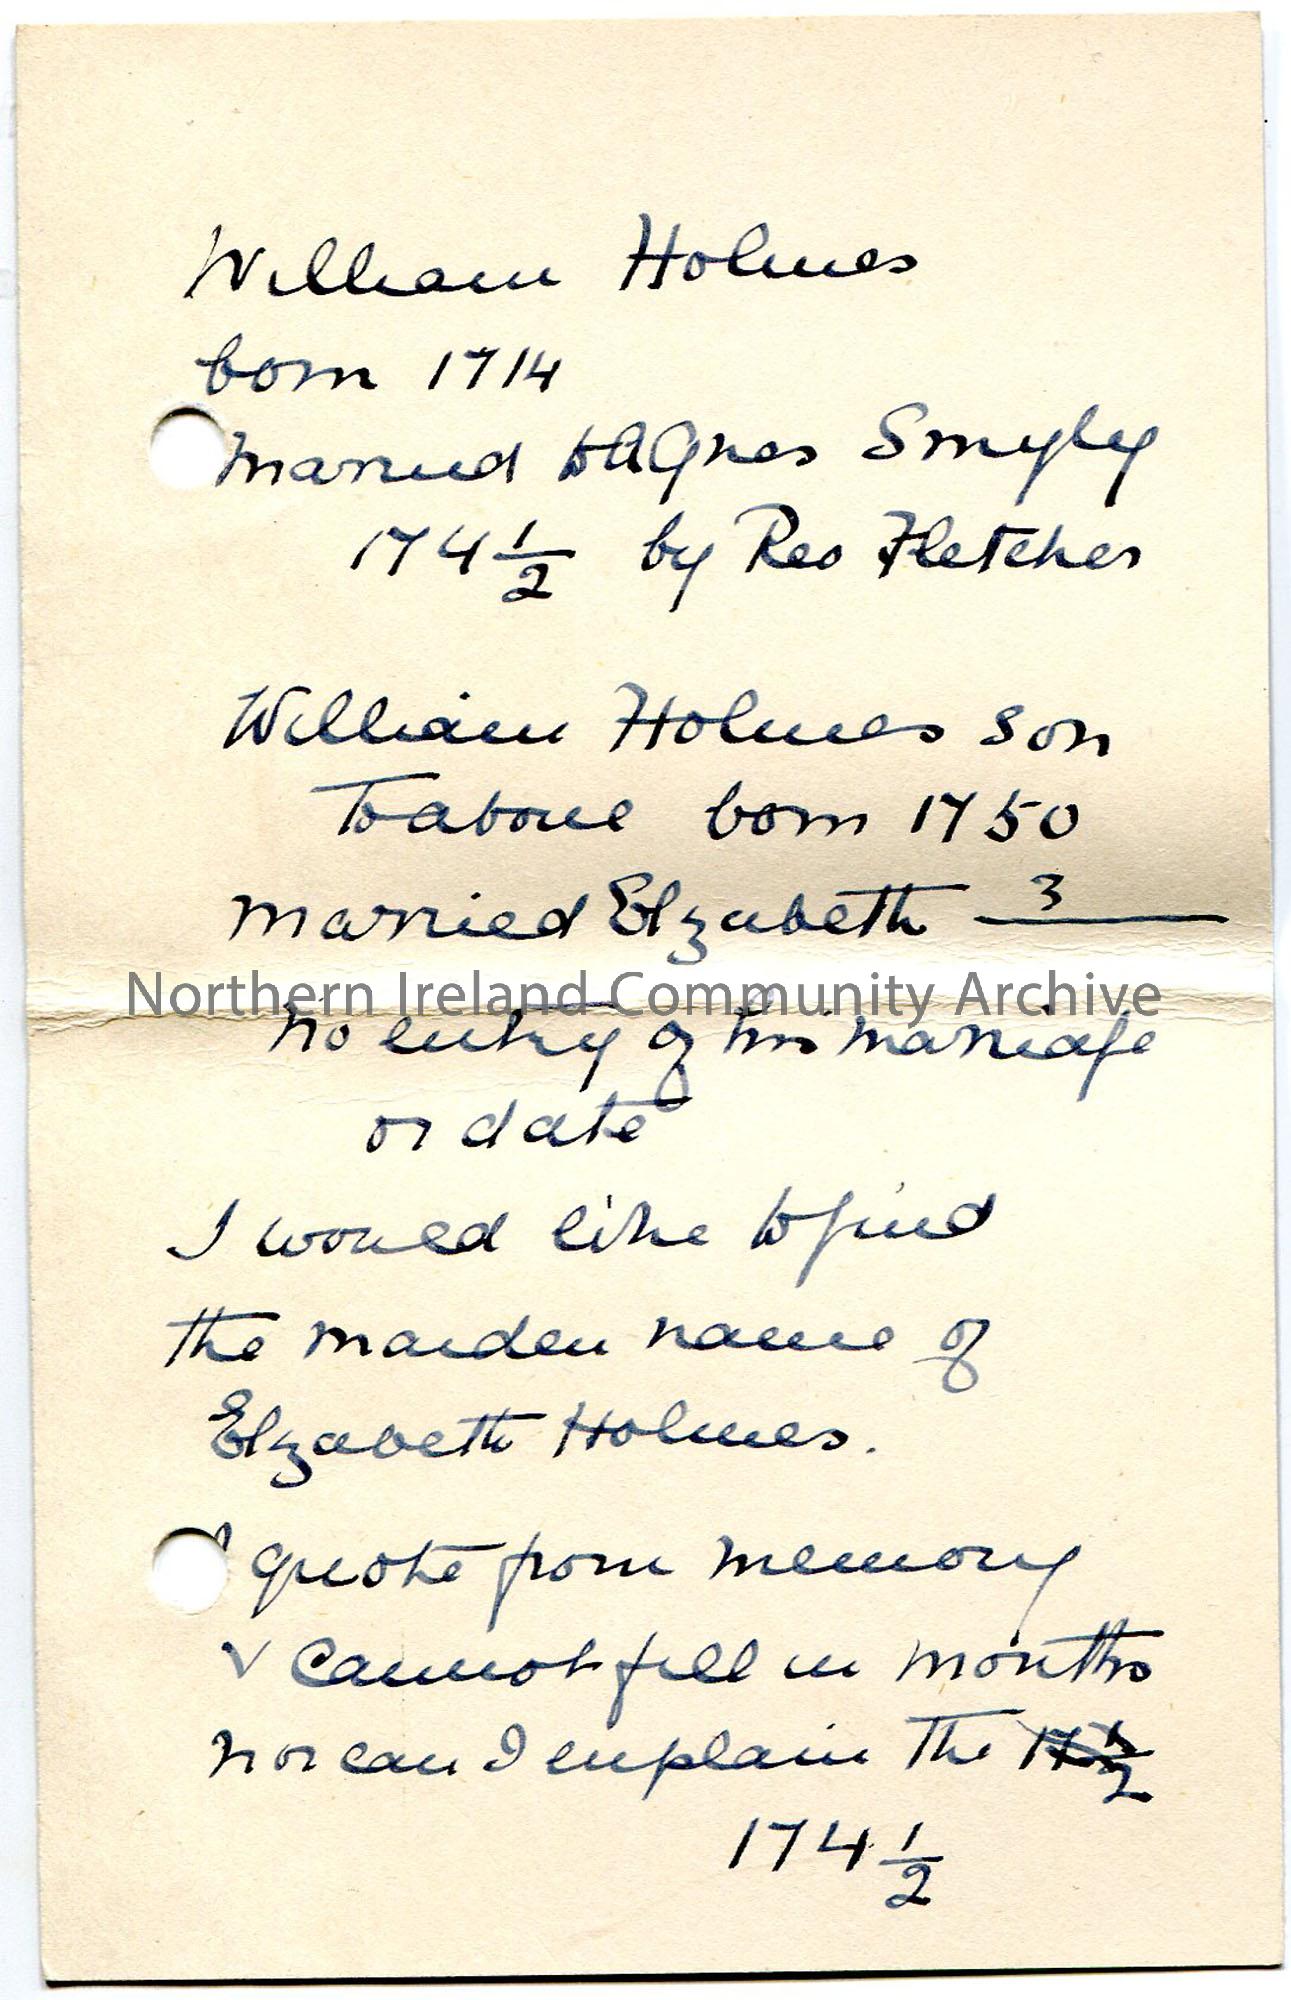 William Holmes
born 1714
Married to Agnes Smyly
174 1/2 by Rev Fletcher
William Holmes son
To above born 1750
married Elzabeth ?
Northern Ireland Community Archive
No entry of his marriage
or date
I would like to find
the maiden name of
Elzabeth Holmes.
I quote from memory
& cannot fill in months
nor can I explain the
174 1/2